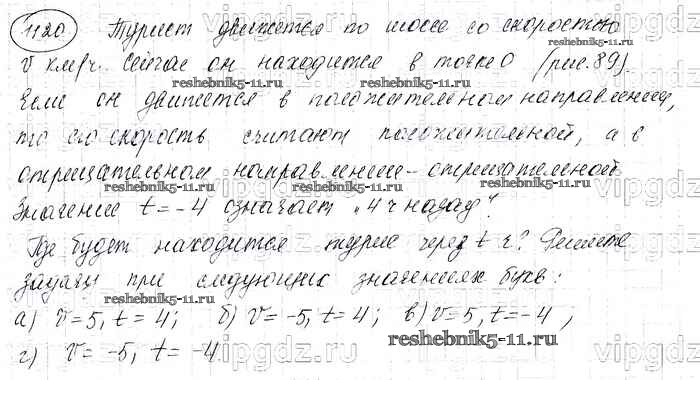 1120 Турист движется по шоссе со скоростью
v км/ч. Сейчас он находится в точке O (рис. 89).
reshebnik5-11.ru
reshebnik5-11.ru
Если он движется в положительном направлении,
то его скорость считают положительной, а в
отрицательном направлении - отрицательной.
reshebnik5-11.ru
reshebnik5-11.ru
Значение t = -4 означает "4 ч назад".
Где будет находится турис через t ч? Решите
задачи при следующих значениях букв:
reshebnik5-11.ru
а) v = 5, t = 4; б) v = -5, t = 4; в) v = 5, t = -4,
reshebnik5-11.ru
г) v = -5, t = -4.
vipgdz.ru